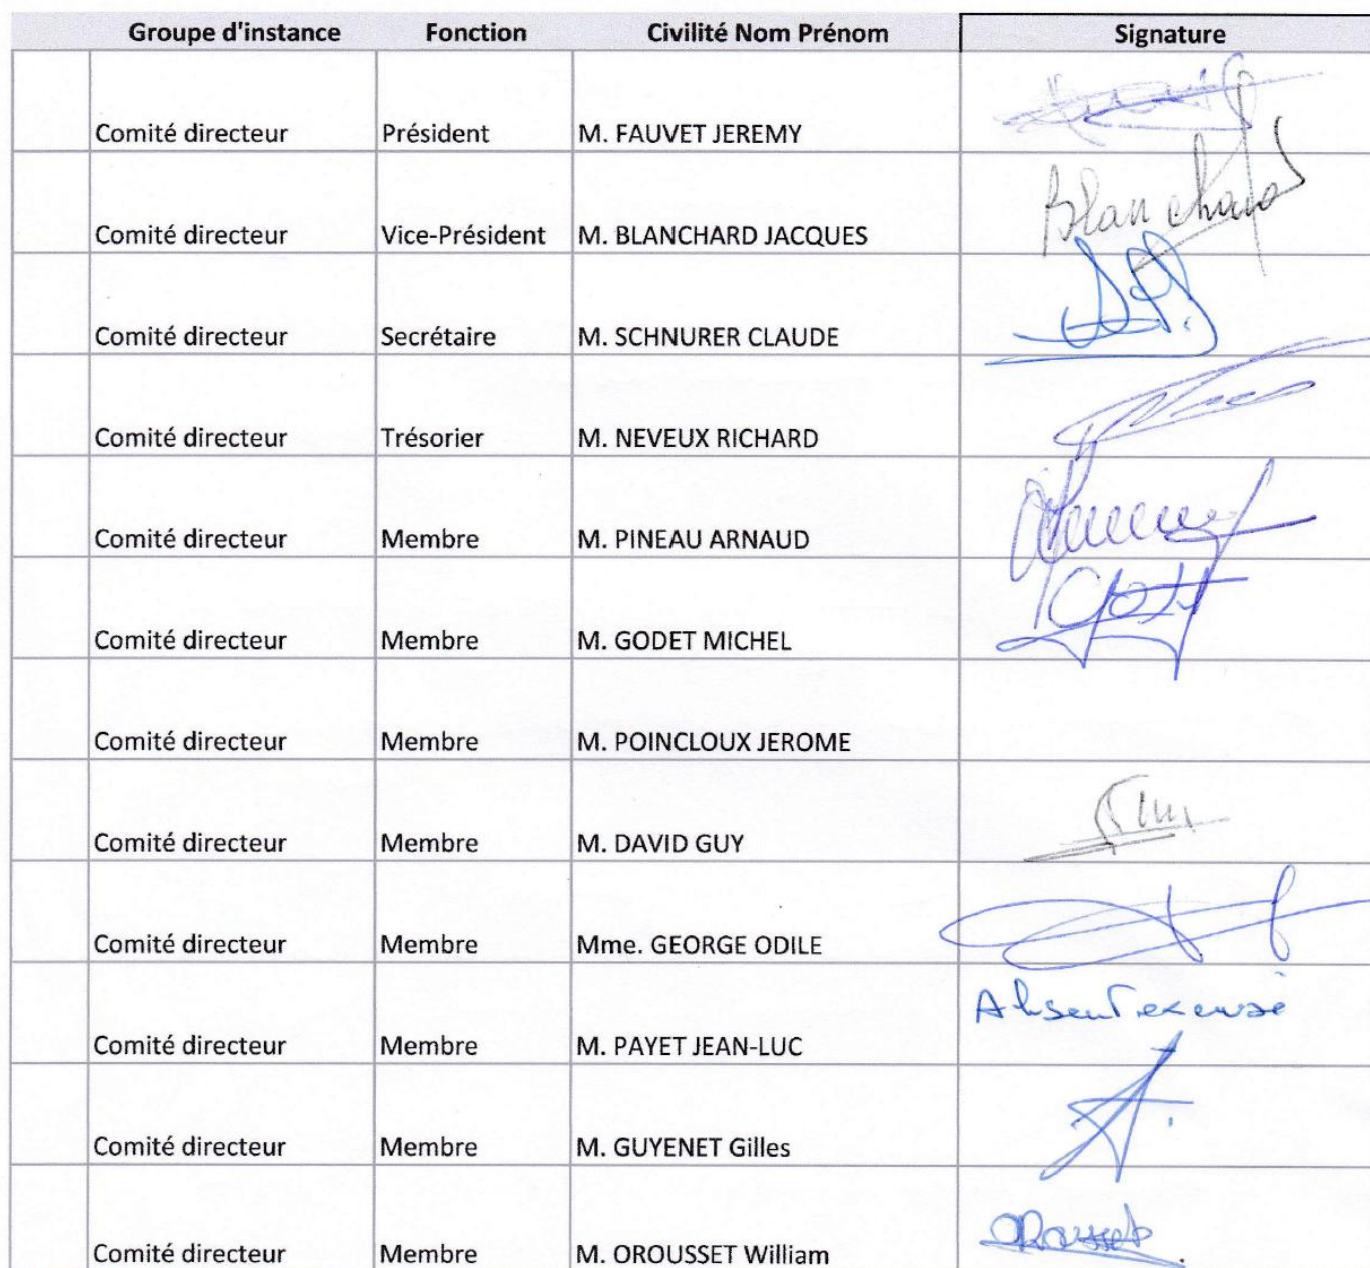 Groupe d'instance Fonction Civilité Nom Prénom Signature
Comité directeur Président M. FAUVET JEREMY
Comité directeur Vice-Président M. BLANCHARD JACQUES Blanchard
Comité directeur Secrétaire M. SCHNURER CLAUDE
Comité directeur Trésorier M. NEVEUX RICHARD
Comité directeur Membre M. PINEAU ARNAUD
Comité directeur Membre M. GODET MICHEL
Comité directeur Membre M. POINCLOUX JEROME
Comité directeur Membre M. DAVID GUY
Comité directeur Membre Mme. GEORGE ODILE
Comité directeur Membre M. PAYET JEAN-LUC Absent excusé
Comité directeur Membre M. GUYENET Gilles
Comité directeur Membre M. OROUSSET William